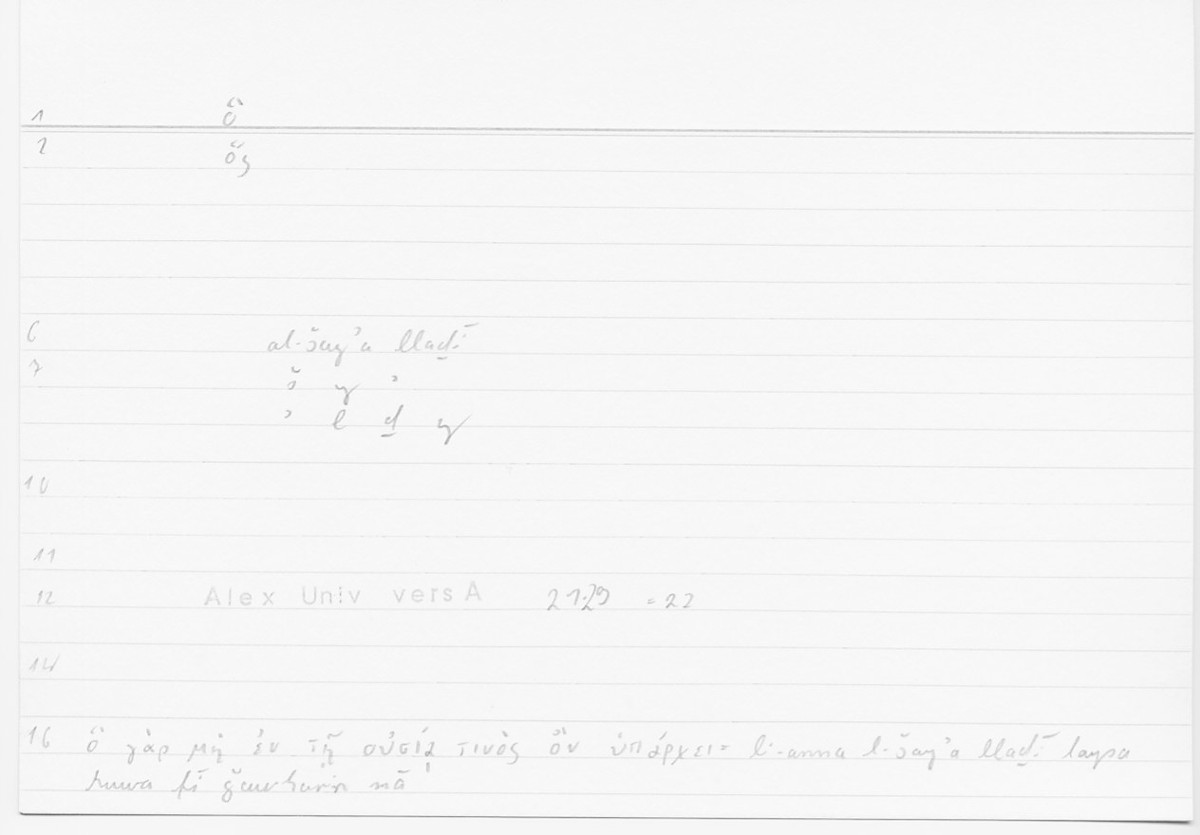 1 ὃ
2 ὅς
6 al-šayʾa llaḏī
7 š y ʾ
ʾ l ḏ y
10
11
12 Alex Univ vers A 21.29 = 22
14
16 ὃ γὰρ μὴ ἐν τῇ οὐσίᾳ τινὸς ὂν ὑπάρχει = li-anna l-šayʾa llaḏī laysa
huwa fī ǧawharin mā